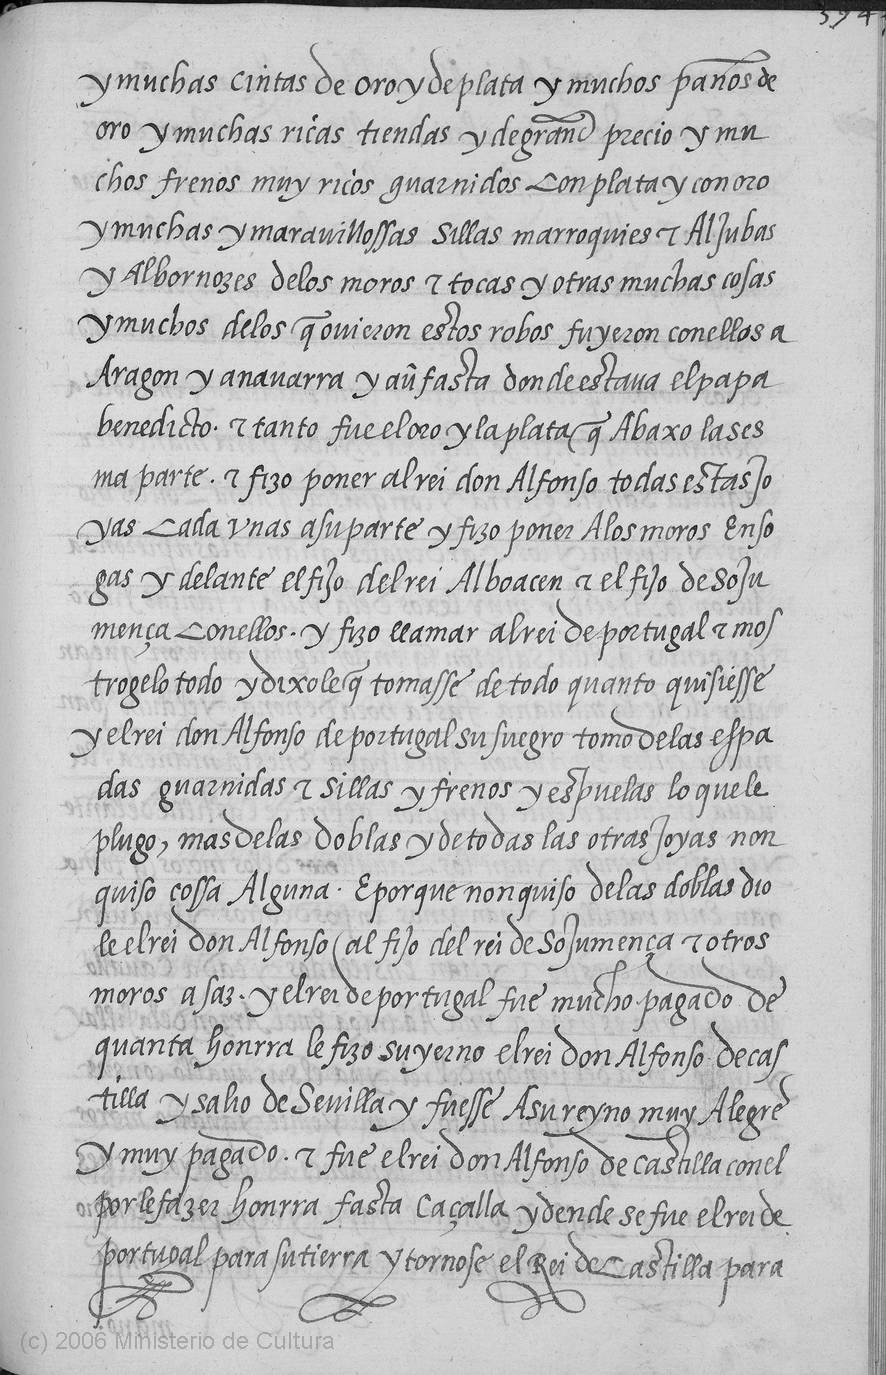 394
y muchas cintas de oro y de plata y muchos paños de
oro y muchas ricas tiendas y de grand precio y mu
chos frenos muy ricos guarnidos con plata y con oro
y muchas y maravillossas sillas marroquies τ Aljubas
y Albornozes delos moros τ tocas y otras muchas cosas
y muchos delos q̃ ovieron estos robos fuyeron conellos a
Aragon y anavarra y aũ fasta donde estava el papa
benedicto. τ tanto fue el oro y la plata q̃ Abaxo la ses
ma parte. τ fizo poner al rei don Alfonso todas estas jo
yas cada vnas asu parte y fizo poner Alos moros En so
gas y delante el fijo del rei Alboacen τ el fijo de Soju
mença conellos. y fizo llamar al rei de portugal τ mos
trogelo todo y dixole q̃ tomasse de todo quanto quisiesse
y el rei don Alfonso de portugal su suegro tomo delas espa
das guarnidas τ sillas y frenos y espuelas lo que le
plugo, mas delas doblas y de todas las otras joyas non
quiso cossa Alguna. E porque non quiso delas doblas dio
le el rei don Alfonso (al fijo del rei de Sojumença τ otros
moros asaz. y el rei de portugal fue mucho pagado de
quanta honrra le fizo su yerno el rei don Alfonso de cas
tilla y salio de Sevilla y fuesse Asu reyno muy Alegre
y muy pagado. τ fue el rei don Alfonso de castilla con el
por le fazer honrra fasta Caçalla y dende se fue el rei de
portugal para su tierra y tornose el Rei de Castilla para
(c) 2006 Ministerio de Cultura